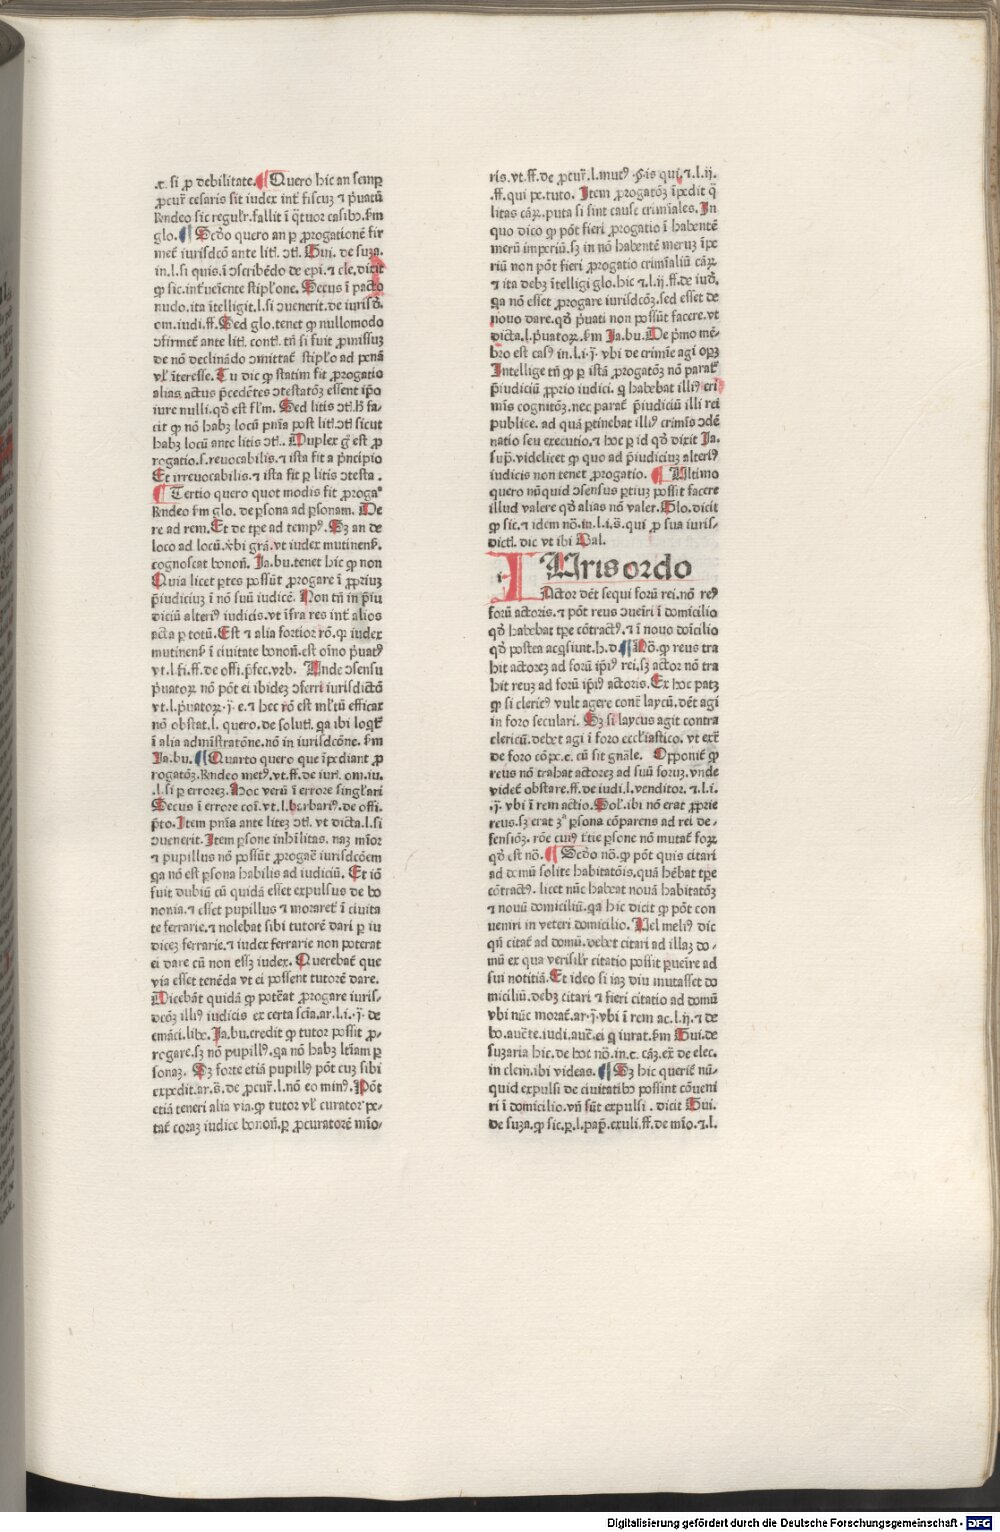 .c. si ꝓ debilitate. ¶ Quero hic an semꝑ
ꝓcur̄ cesaris sit iudex int̄ fiscuꝫ ⁊ p̄uatū
Rn̄deo sic regulr̄. fallit ī q̄tuor casibꝰ. ẜm
glo. ¶ Scd̄o quero an ꝑ ꝓrogationē fir
met̄ iurisdcō ante litꝭ ↄtꝭ. Gui. de suza.
in. l. si quis. ī ↄscribēdo de epi. ⁊ cle. dicit
ꝙ sic. int̄ueniente stipl̓one. Secus ī pacto
nudo. ita ītelligit. l. si ↄuenerit. de iurisd̄.
om. iudi. ff. Sed glo. tenet ꝙ nullomodo
ↄfirmet̄ ante litꝭ. contꝭ. tn̄ si fuit ꝓmissuꝫ
de nō declinādo ↄmittat̄ stipl̓o ad penā
vl̓ īteresse. Tu dic ꝙ statim fit ꝓrogatio
alias actus p̄cedētes ↄtestatōꝫ essent ip̄o
iure nulli. qd̄ est fl̓m. Sed litis ↄtꝭ. h̄ fa-
cit ꝙ nō habꝫ locū pn̄ia post litꝭ. ↄtꝭ sicut
habꝫ locū ante litis ↄtꝭ.. Duplex g̊ est ꝓ
rogatio. s. reuocabilis. ⁊ ista fit a p̄ncipio
Et irreuocabilis. ⁊ ista fit ꝑ litis ↄtesta.
¶ Tertio quero quot modis fit ꝓrogaº
Rn̄deo ẜm glo. de ꝑsona ad ꝑsonam. De
re ad rem. Et de tp̄e ad tempꝰ. Sꝫ an de
loco ad locū. v̄bi grā. vt iudex mutinenẜ.
cognoscat bonoñ. Ja. bu. tenet hic ꝙ non
Quia licet ꝑtes possūt ꝓrogare ī ꝓpriuꝫ
p̄iudiciuꝫ ī nō suū iudicē. Non tn̄ in p̄iu
diciū alteriꝰ iudicis. vt īfra res int̄ alios
acta ꝑ totū. Est ⁊ alia fortior rō. qꝛ iudex
mutinenẜ ī ciuitate bonoñ. est oīno p̄uatꝰ
vt. l. fi. ff. de offi. p̄fec. vrb. Unde ↄsensu
p̄uatoꝝ nō pōt ei ibidez ↄferri iurisdictō
vt. l. p̄uatoꝝ. j. e. ⁊ hec rō est ml̓tū efficax
nō obstat. l. quero. de solutꝭ. qa ibi loqt̄
ī alia admīstratōne. nō in iurisdcōne. ẜm
Ja. bu. ¶ Quarto quero que īpediant ꝓ
rogatōꝫ. Rn̄deo metꝰ. vt. ff. de iurꝭ. om. iu.
.l. si ꝑ errorez. Hoc verū ī errore singl̓ari
Secus ī errore coī. vt. l. barbariꝰ. de offi.
p̄to. Item pn̄ia ante litez ↄtꝭ. vt dicta. l. si
ↄuenerit. Item ꝑsone inhīlitas. naꝫ mīor
⁊ pupillus nō possūt ꝓrogar̄ iurisdcōem
qa nō est ꝑsona habilis ad iudiciū. Et iō
fuit dubiū cū quidā esset expulsus de bo
nonia. ⁊ esset pupillus ⁊ moraret̄ ī ciuita
te ferrarie. ⁊ nolebat sibi tutorē dari ꝑ iu
dicez ferrarie. ⁊ iudex ferrarie non poterat
ei dare cū non essꝫ iudex. Querebat̄ que
via esset tenēda vt ei possent tutorē dare.
Dicebāt quidā ꝙ potēat ꝓrogare iuris-
dcōꝫ illiꝰ iudicis ex certa scīa. ar. l. i. j. de
emāci. libe. Ja. bu. credit ꝙ tutor possit ꝓ-
rogare. sꝫ nō pupillꝰ. qa nō habꝫ ltīam ꝑ
sonaꝫ. Sꝫ forte etiā pupillꝰ pōt cuꝫ sibi
expedit. ar. s̄. de ꝓcur̄. l. nō eo minꝰ. Pōt
etiā teneri alia via. ꝙ tutor vl̓ curator pe-
tat̄ coraꝫ iudice bonoñ. ꝑ ꝓcuratorē mīo-
ris. vt. ff. de ꝓcur̄. l. mutꝰ. §. is qui. ⁊. l. ij.
.ff. qui pe. tuto. Item ꝓrogatōꝫ īpedit q̄
litas cāꝝ. puta si sint cause crimīales. In
quo dico ꝙ pōt fieri ꝓrogatio ī habentē
merū imperiū. sꝫ in nō habentē meruꝫ īpe
riū non pōt fieri ꝓrogatio crimīaliū cāꝝ
⁊ ita debꝫ ītelligi glo. hic ⁊. l. ij. ff. de iud̄.
qa nō esset ꝓrogare iurisdcōꝫ. sed esset de
nouo dare. qd̄ p̄uati non possūt facere. vt
dicta. l. p̄uatoꝝ. ẜm Ja. bu. De p̄mo mē-
bro est casꝰ in. l. i. j. vbi de crimīe agi opꝫ
Intellige tn̄ ꝙ ꝑ istā ꝓrogatōꝫ nō parat̄
p̄iudiciū ꝓprio iudici. q̄ habebat illiꝰ cri
mīs cognitōꝫ. nec parat̄ p̄iudiciū illi rei
publice. ad quā ꝑtinebat illiꝰ crimīs ↄdē
natio seu executio. ⁊ hoc ꝑ id qd̄ dixit Ja.
sup̄. videlicet ꝙ quo ad p̄iudiciuꝫ alteriꝰ
iudicis non tenet ꝓrogatio. ¶ Ultimo
quero nūquid ↄsensus ꝑtiuꝫ possit facere
illud valere qd̄ alias nō valet. Glo. dicit
ꝙ sic. ⁊ idem nō. in. l. i. s̄. qui ꝓ sua iuris-
dictꝭ. dic vt ibi Bal.
IUris ordo
Actor dēt sequi forū rei. nō reꝰ
forū actoris. ⁊ pōt reus ↄueīri ī domicilio
qd̄ habebat tp̄e cōtractꝰ. ⁊ ī nouo doīcilio
qd̄ postea acqsiunt. h. d. ¶ Nō. ꝙ reus tra
hit actoreꝫ ad forū ip̄iꝰ rei. sꝫ actor nō tra
hit reuꝫ ad forū ip̄iꝰ actoris. Ex hoc patꝫ
ꝙ si clericꝰ vult agere cont̄ laycū. dēt agi
in foro seculari. Sꝫ si laycus agit contra
clericū. debet agi ī foro eccl̓iastico. vt ext̄
de foro cōpe. c. cū sit gnāle. Opponit̄ ꝙ
reus nō trahat actorez ad suū foruꝫ. vnde
videt̄ obstare. ff. de iudi. l. venditor. ⁊. l. i.
.j. vbi ī rem actio. Sol̓. ibi nō erat ꝓprie
reus. sꝫ erat 3ª ꝑsona cōparens ad rei de-
fensiōꝫ. rōe cuiꝰ t̄tie ꝑsone nō mutat̄ foꝝ
qd̄ est nō. ¶ Scd̄o nō. ꝙ pōt quis citari
ad domū solite habitatōis. quā hēbat tp̄e
cōtractꝰ. licet nūc habeat nouā habitatōꝫ
⁊ nouū domiciliū. qa hic dicit ꝙ pōt con
ueniri in veteri domicilio. Uel meliꝰ dic
qn̄ citat̄ ad domū. debet citari ad illaꝫ do-
mū ex qua verisil̓r citatio possit ꝑueīre ad
sui notitiā. Et ideo si iaꝫ diu mutasset do
miciliū. debꝫ citari ⁊ fieri citatio ad domū
vbi nūc morat̄. ar. j. vbi ī rem ac. l. ij. ⁊ de
bo. auc̄te. iudi. auct̄. ei q̄ iurat. ẜm Gui. de
suzaria hic. de hoc nō. in. c. cāꝫ. ex̄ de elec.
in clem̄. ibi videas. ¶ Sꝫ hic querit̄ nū-
quid expulsi de ciuitatibꝰ possint cōueni
ri ī domicilio. vn̄ sūt expulsi. dicit Gui.
de suza. ꝙ sic. ꝑ. l. pap̄. exuli. ff. de mīo. ⁊. l.
Digitalisierung gefördert durch die Deutsche Forschungsgemeinschaft - DFG